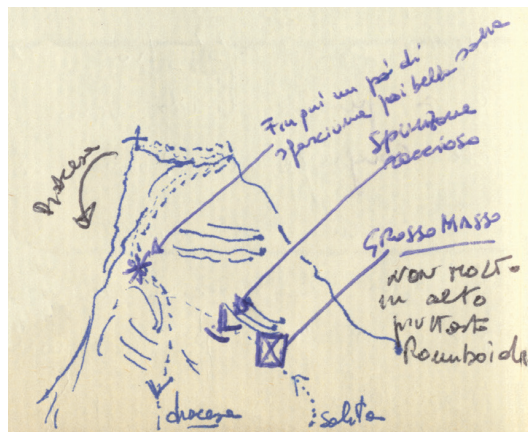 Fin qui un pó di
sfasciume poi bella salita
Spuntone
roccioso
Discesa
GROSSO MASSO
NON MOLTO
in alto
piuttosto
Romboidale
discesa
salita